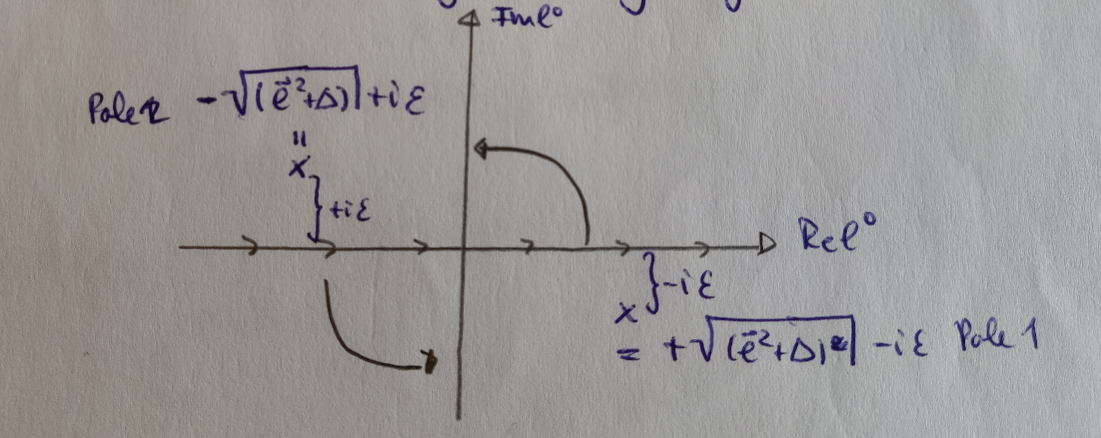 Im l⁰
Pole 2 -√(l⃗²+Δ) +iε
=
x
}+iε
Re l⁰
}-iε
x
= +√(l⃗²+Δ) -iε Pole 1